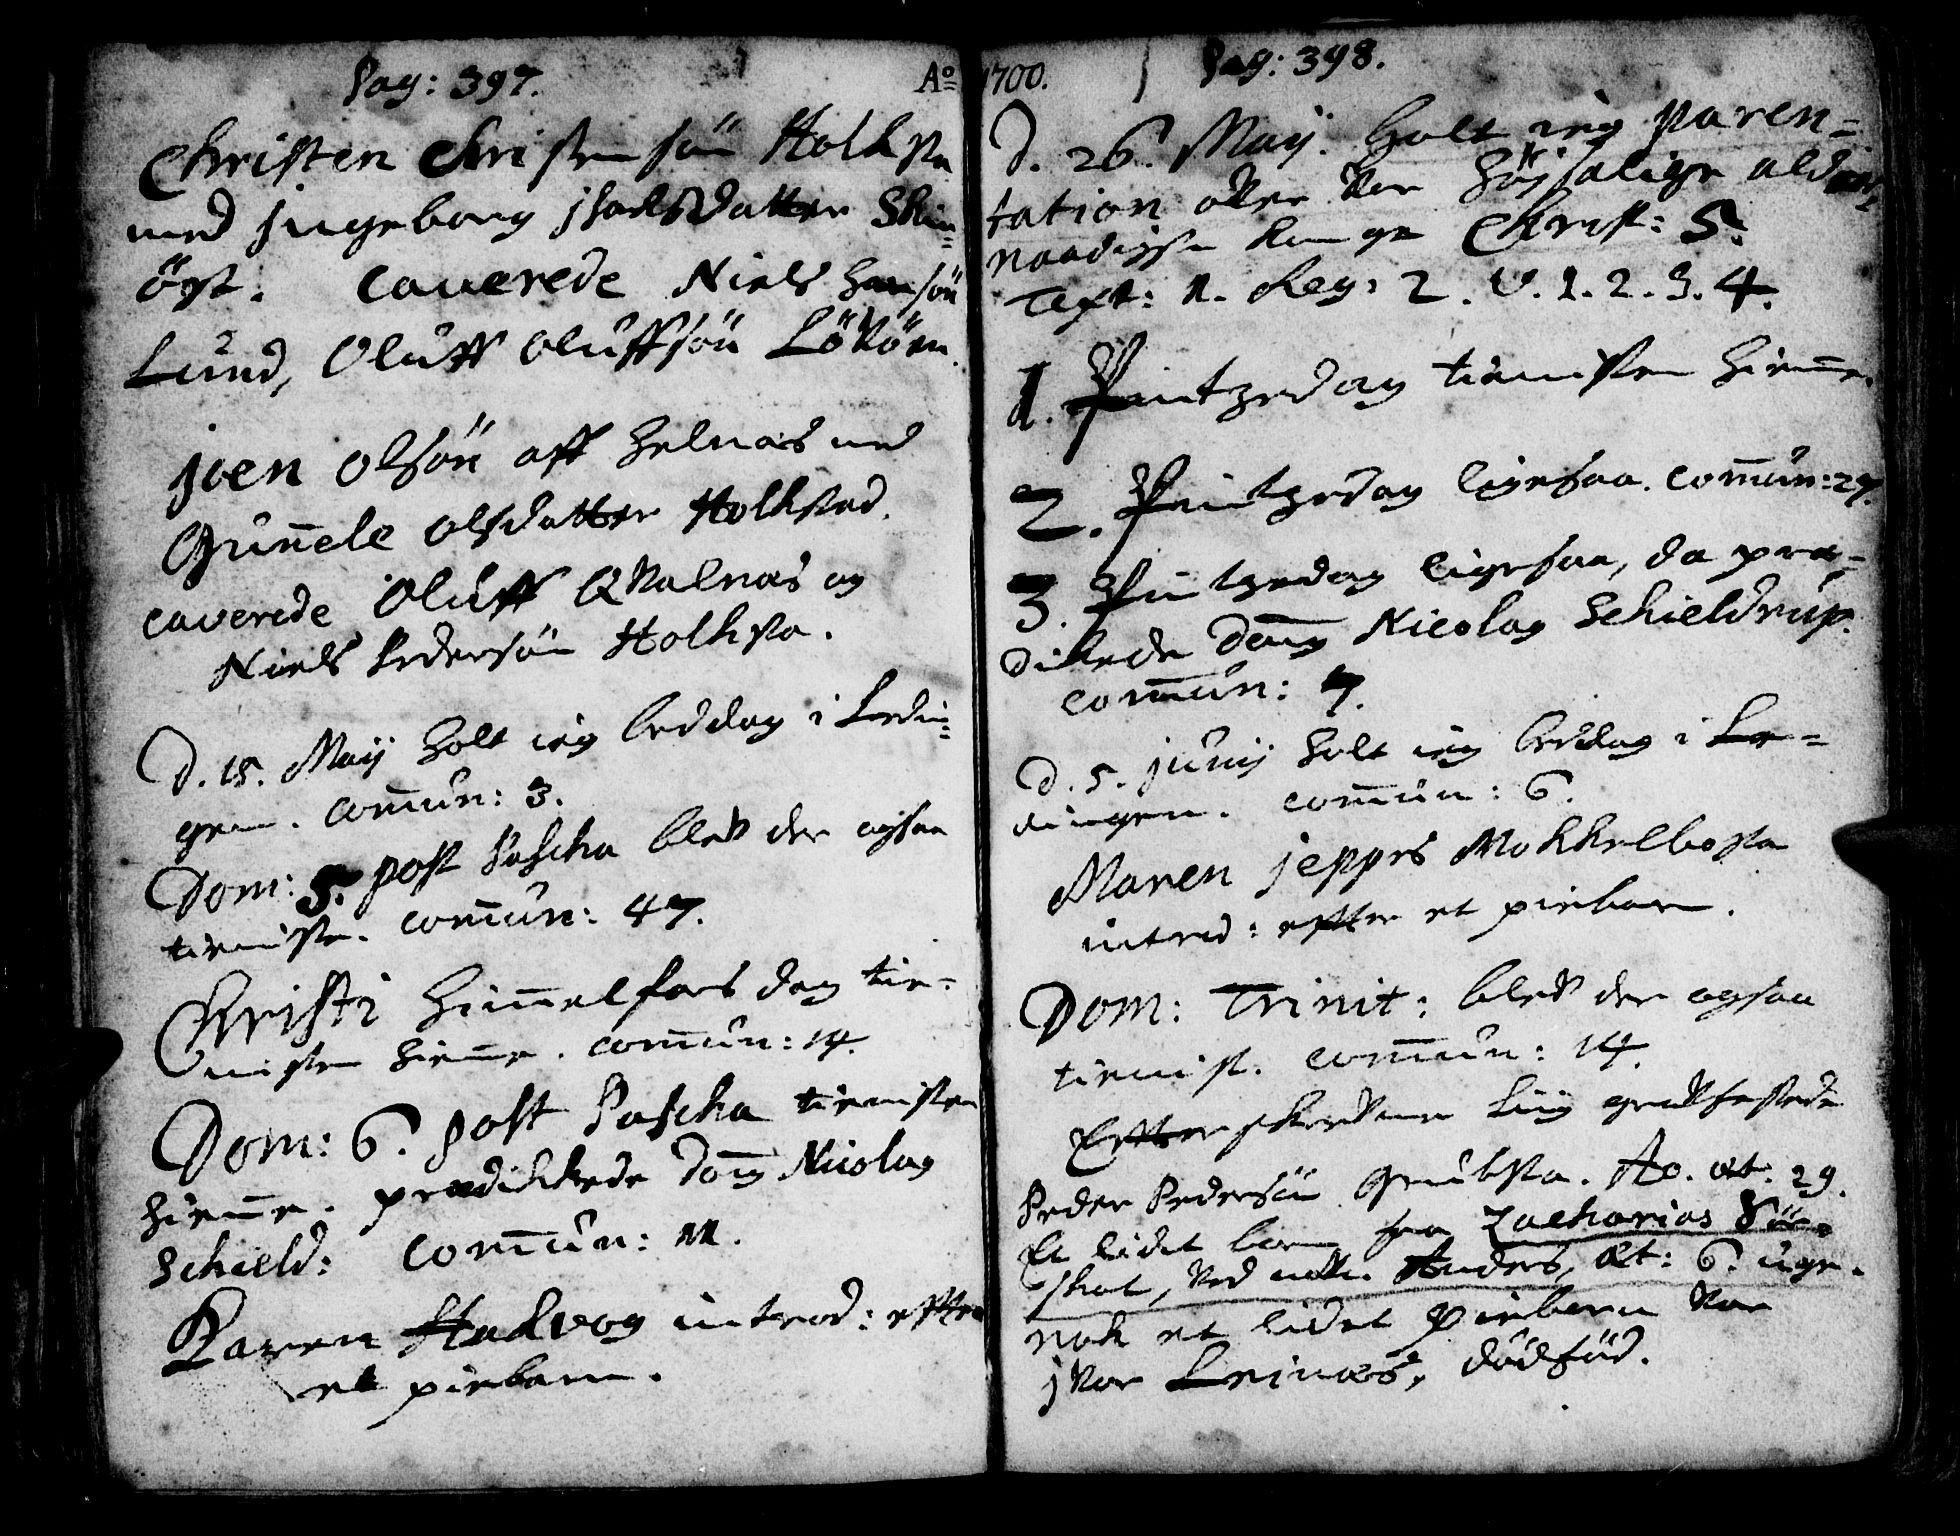 Pag: 397. Aº
Christen Christensön Holksta
med Jngeborg jsachsdatter Skin=
öye. caverede Niels Hansön
Lund, Oluff Oluffsön LöVöen.
joen Olsön aff Helnæs med
Guñele Olsdatter Holksted.
caverede Oluff QValnæs og
Niels Pedersön Holksta.
D. 15. Maij holt ieg beddag i Lødin=
gen. comūn: 3.
Dom: 5. post Pascha bleV der ogsaa
tienist. comūn: 47.
Christi Himmelfars dag tie=
nisten hieme. comūn: 14.
Dom: 6. post Pascha tienisten
hieme. prædikkede Dom Nicolay
Schield: comūn: 11.
Karen Hadvog introd: efter
et pigebarn.
1700. Pag: 398.
D. 26. Maij. holt ieg Paren=
tation over Vor Höysalige alder=
naadigste Konge Christ: 5.
Text: 1. Reg: 2. V. 1. 2. 3. 4.
1. Pintzedag tienisten hieme.
2. Pintzedag ligesaa. comūn: 27.
3. Pintzedag ligesaa, da præ=
dikede Dom Nicolay Schieldrup.
comūn: 7.
D. 5. junij holt ieg beddag i Lø=
dingen. comūn: 6.
Maren jeppes Mokkelbosta
introd: efter et pigebarn.
Dom: Trinit: bleV der ogsaa
tienist. comūn: 14.
Efterskrevne Liig graffestede
Peder Pedersön Grubsta. Ao. æt. 29.
Et lidet barn fra Zacharias
skat, Ved naffn Anders, æt: 6. uger.
nok et lidet Pigebarn Von
jVor Leinæs, dödföd.